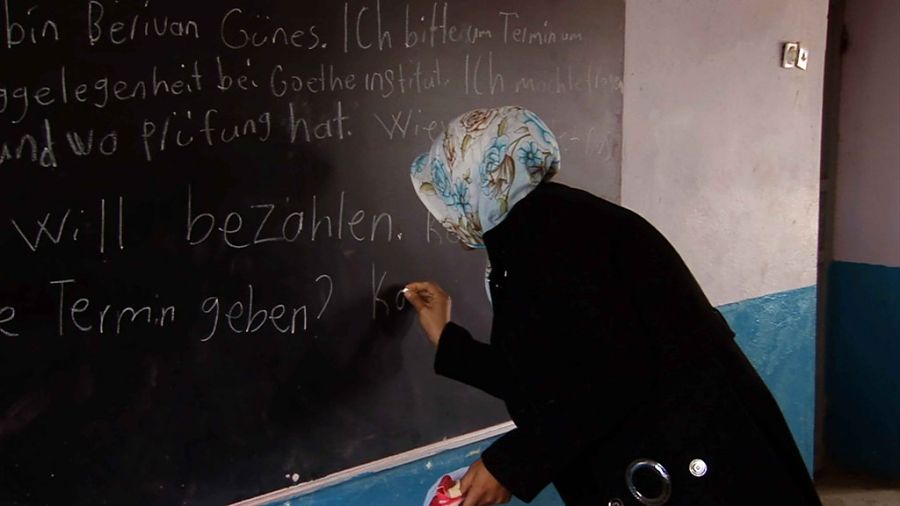 bin Berivan Günes. Ich bitte um Termin um
ggelegenheit bei Goethe institut. Ich möchte
und wo Prüfung hat. Wie
will bezahlen.
e Termin geben? Ka